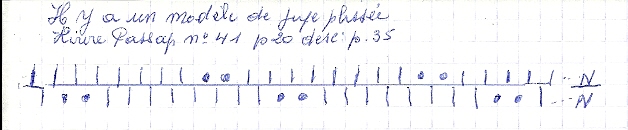 Il y a un modèle de jupe plissée
Livre Passap n° 41 p 20 desc. p. 35
N
N